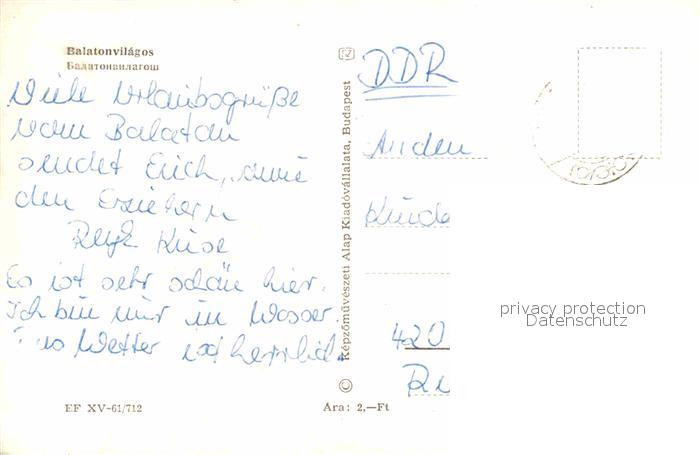 Balatonvilágos
Балатонвилагош
Viele Urlaubsgrüße
vom Balaton
sendet Euch, sowie
den Erziehern
Es ist sehr schön hier.
Ich bin nur im Wasser.
Wetter ist herrlich.
EF XV-61/712
Ára: 2,—Ft
© Képzőművészeti Alap Kiadóvállalata, Budapest
DDR
An den
420
privacy protection
Datenschutz